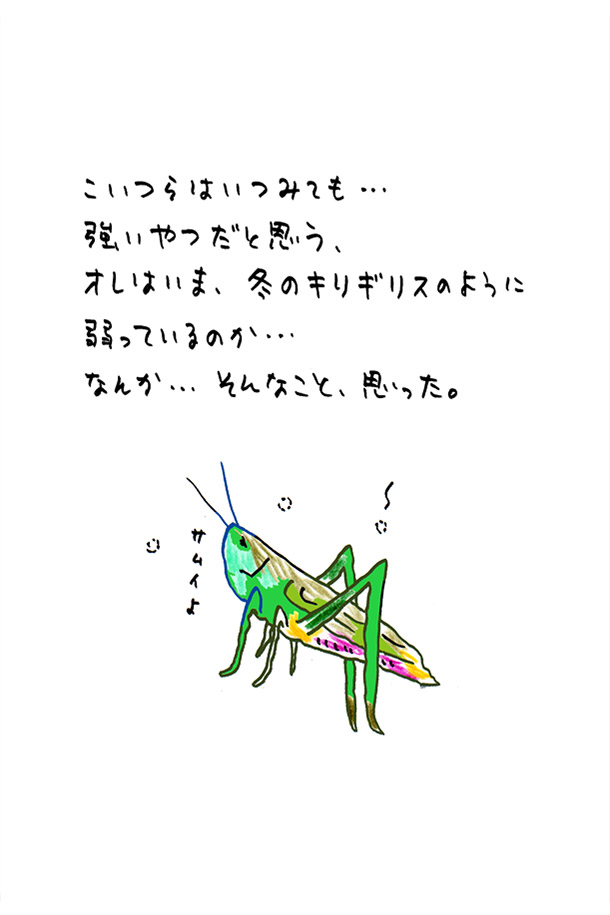 こいつらはいつみても…
強いやつだと思う、
オレはいま、冬のキリギリスのように
弱っているのか…
なんか… そんなこと、思った。
サムイよ